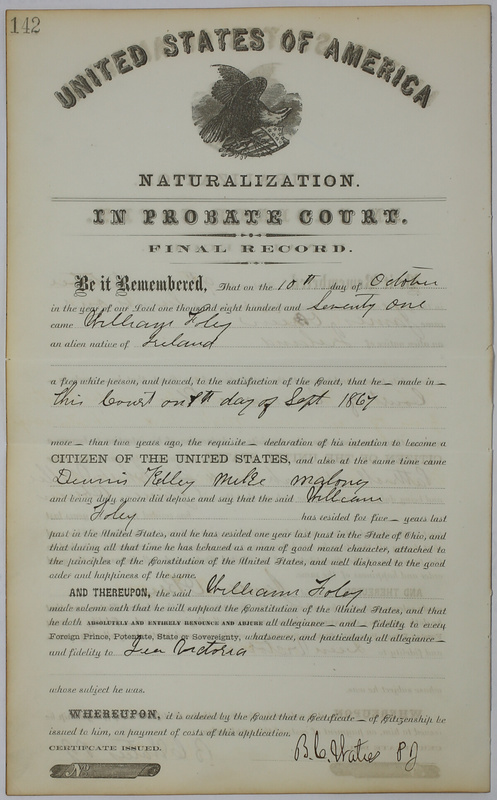 142
UNITED STATES OF AMERICA
NATURALIZATION.
IN PROBATE COURT.
FINAL RECORD.
Be it Remembered, That on the 10th day of October
in the year of our Lord one thousand eight hundred and Seventy one
came William Foley
an alien native of Ireland
a free white person, and proved, to the satisfaction of the Court, that he made in
this Court on 9th day of Sept 1867
more than two years ago, the requisite declaration of his intention to become a
CITIZEN OF THE UNITED STATES, and also at the same time came
Dennis Kelley Mike Maloney
and being duly sworn did depose and say that the said William
Foley has resided for five years last
past in the United States, and he has resided one year last past in the State of Ohio, and
that during all that time he has behaved as a man of good moral character, attached to
the principles of the Constitution of the United States, and well disposed to the good
order and happiness of the same.
AND THEREUPON, the said William Foley
made solemn oath that he will support the Constitution of the United States, and that
he doth ABSOLUTELY AND ENTIRELY RENOUNCE AND ABJURE all allegiance and fidelity to every
Foreign Prince, Potentate, State or Sovereignty, whatsoever, and particularly all allegiance
and fidelity to Victoria
whose subject he was.
WHEREUPON, it is ordered by the Court that a Certificate of Citizenship be
issued to him, on payment of costs of this application.
CERTIFCATE ISSUED. B. C. P J